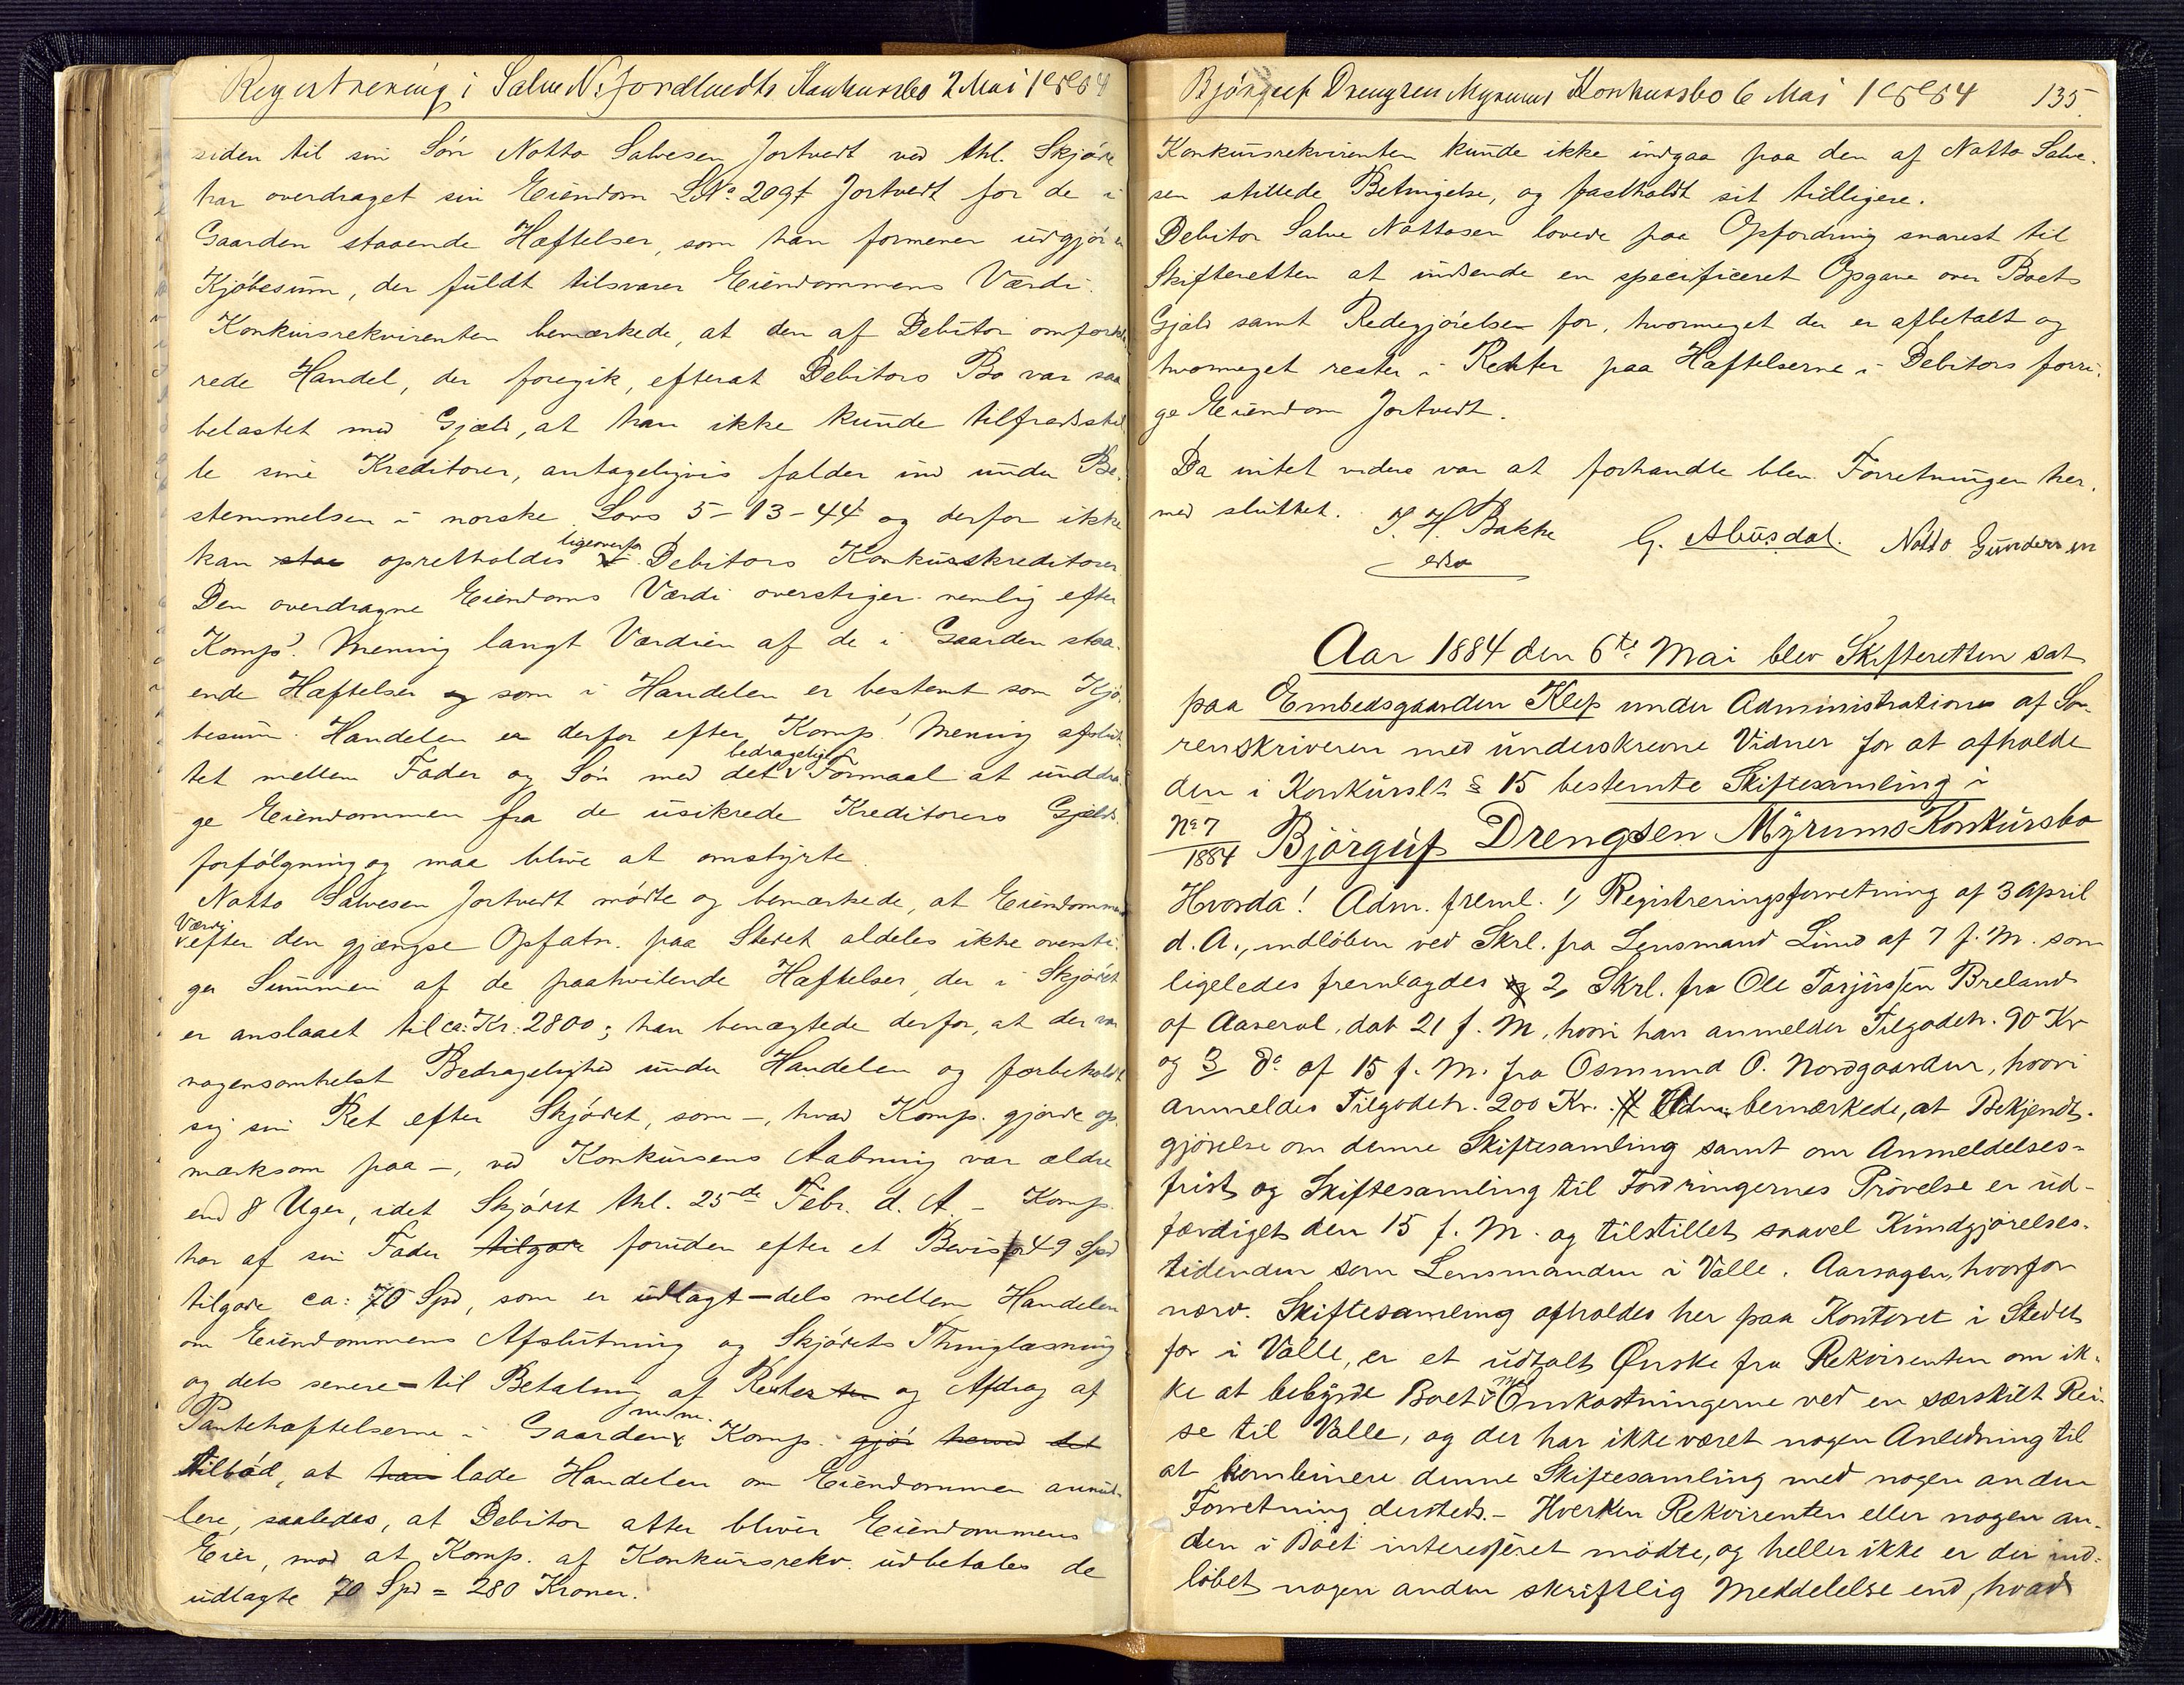 Registrering i Salve N. Jordtvedts Konkursbo 2 Mai 1884
siden til sin Sön Notto Salvesen Jortvedt ved thl. Skjöde
har overdraget sin Eiendom LNo. 209f Jortvedt for de i
Gaarden staaende Hæftelser, som han formener udgjör en
Kjöbesum, der fuldt tilsvarer Eiendommens Værdi.
Konkursrekvirenten bemærkede, at den af Debitor omforkla
rede Handel, der foregik, efterat Debitors Bo var saa
belastet med Gjæld, at han ikke kunde tilfredsstil
le sine Kreditorer, antageligvis falder ind under Be-
stemmelsen i norske Lovs 5-13-44 og derfor ikke
kan staa opretholdes ligeoverfor Debitors Konkurskreditorer
Den overdragne Eiendoms Værdi overstiger nemlig efter
Komp.' Mening langt Værdien af de i Gaarden staa-
ende Hæftelser og som i Handelen er bestemt som Kjö-
besum. Handelen er derfor efter Komp.' Mening afslut-
tet mellem Fader og Sön med det bedragelige Formaal at unddra-
ge Eiendommen fra de usikrede Kreditorers Gjelds-
forfölgning og maa blive at omstyrte.
Notto Salvesen Jortvedt mödte og bemærkede, at Eiendommens
Værdi efter den gjængse Opfatn. paa Stedet aldeles ikke oversti-
ger Summen af de paahvilende Hæftelser, der i Skjödet
er anslaaet til ca: Kr. 2800; han benægtede derfor, at der var
nogensomhelst Bedragelighed under Handelen og forbeholdt
sig sin Ret efter Skjödet, som -, hvad Komp. gjorde op-
mærksom paa -, ved Konkursens Aabning var ældre
end 8 Uger, idet Skjödet thl. 25de Febr. d. A. - Komp.
har af sin Fader tilgode foruden efter et Bevis for 49 Spd
tilgode ca: 70 Spd, som er udlagt - dels mellem Handelen
om Eiendommens Afslutning og Skjödets Thinglæsning
og dels senere - til Betaling af Renter og Afdrag af
Pantehæftelserne i Gaarden m. m. Komp. gjör herved det
tilböd, at han lade Handelen om Eiendommen annul-
lere, saaledes, at Debitor atter bliver Eiendommens
Eier, mod at Komp. af Konkursrekv. udbetales de
udlagte 70 Spd = 280 Kroner.
Björguf Drengsen Myrums Konkursbo 6 Mai 1884 135
Konkursrekvirenten kunde ikke indgaa paa den af Notto Salve-
sen stillede Betingelse, og fastholdt sit tidligere.
Debitor Salve Nottosen lovede paa Opfordring snarest til
Skifteretten at indsende en specificeret Opgave over Boets
Gjæld samt Redegjörelse for, hvormeget der er afbetalt og
hvormeget rester i Renter paa Hæftelserne i Debitors forri-
ge Eiendom Jortvedt.
Da intet videre var at forhandle blev Forretningen her-
med sluttet. J. H. Bakke G. Aabusdal. Notto Gundersen
edsv
Aar 1884 den 6te Mai blev Skifteretten sat
paa Embedsgaarden Klep under Administration af So-
renskriveren med underskrevne Vidner for at afholde
den i Konkursl. § 15 bestemte Skiftesamling i
No 7
1884 Björguf Drengsen Myrums Konkursbo
Hvorda! Adm. freml. 1, Registreringsforretning af 3 April
d. A., indlöben ved Skrl. fra Lensmand Lund af 7 f. M. som
ligeledes fremlagdes og 2, Skrl. fra Ole Tarjussen Breland
af Aaseral, dat 21 f. M, hvori han anmelder Tilgodeh. 90 Kr
og 3 do af 15 f. M. fra Osmund O. Nordgaarden, hvori
anmeldes Tilgodeh. 200 Kr. Adm. bemærkede, at Bekjendt-
gjörelse om denne Skiftesamling samt om Anmeldelses-
frist og Skiftesamling til Fordringernes Prövelse er ud-
færdiget den 15 f. M. og tilstillet saavel Kundgjörelses-
tidenden som Lensmanden i Valle. Aarsagen, hvorfor
nærv. Skiftesamling afholdes her paa Kontoret i Stedet
for i Valle, er et udtalt Ønske fra Rekvirenten om ik-
ke at bebyrde Boet med Omkostningerne ved en særskilt Rei-
se til Valle, og der har ikke været nogen Anledning til
at kombinere denne Skiftesamling med nogen anden
Forretning dersteds. - Hverken Rekvirenten eller nogen an-
den i Boet interesseret mödte, og heller ikke er der ind-
löbet nogen anden skriftlig Meddelelse end, hvad